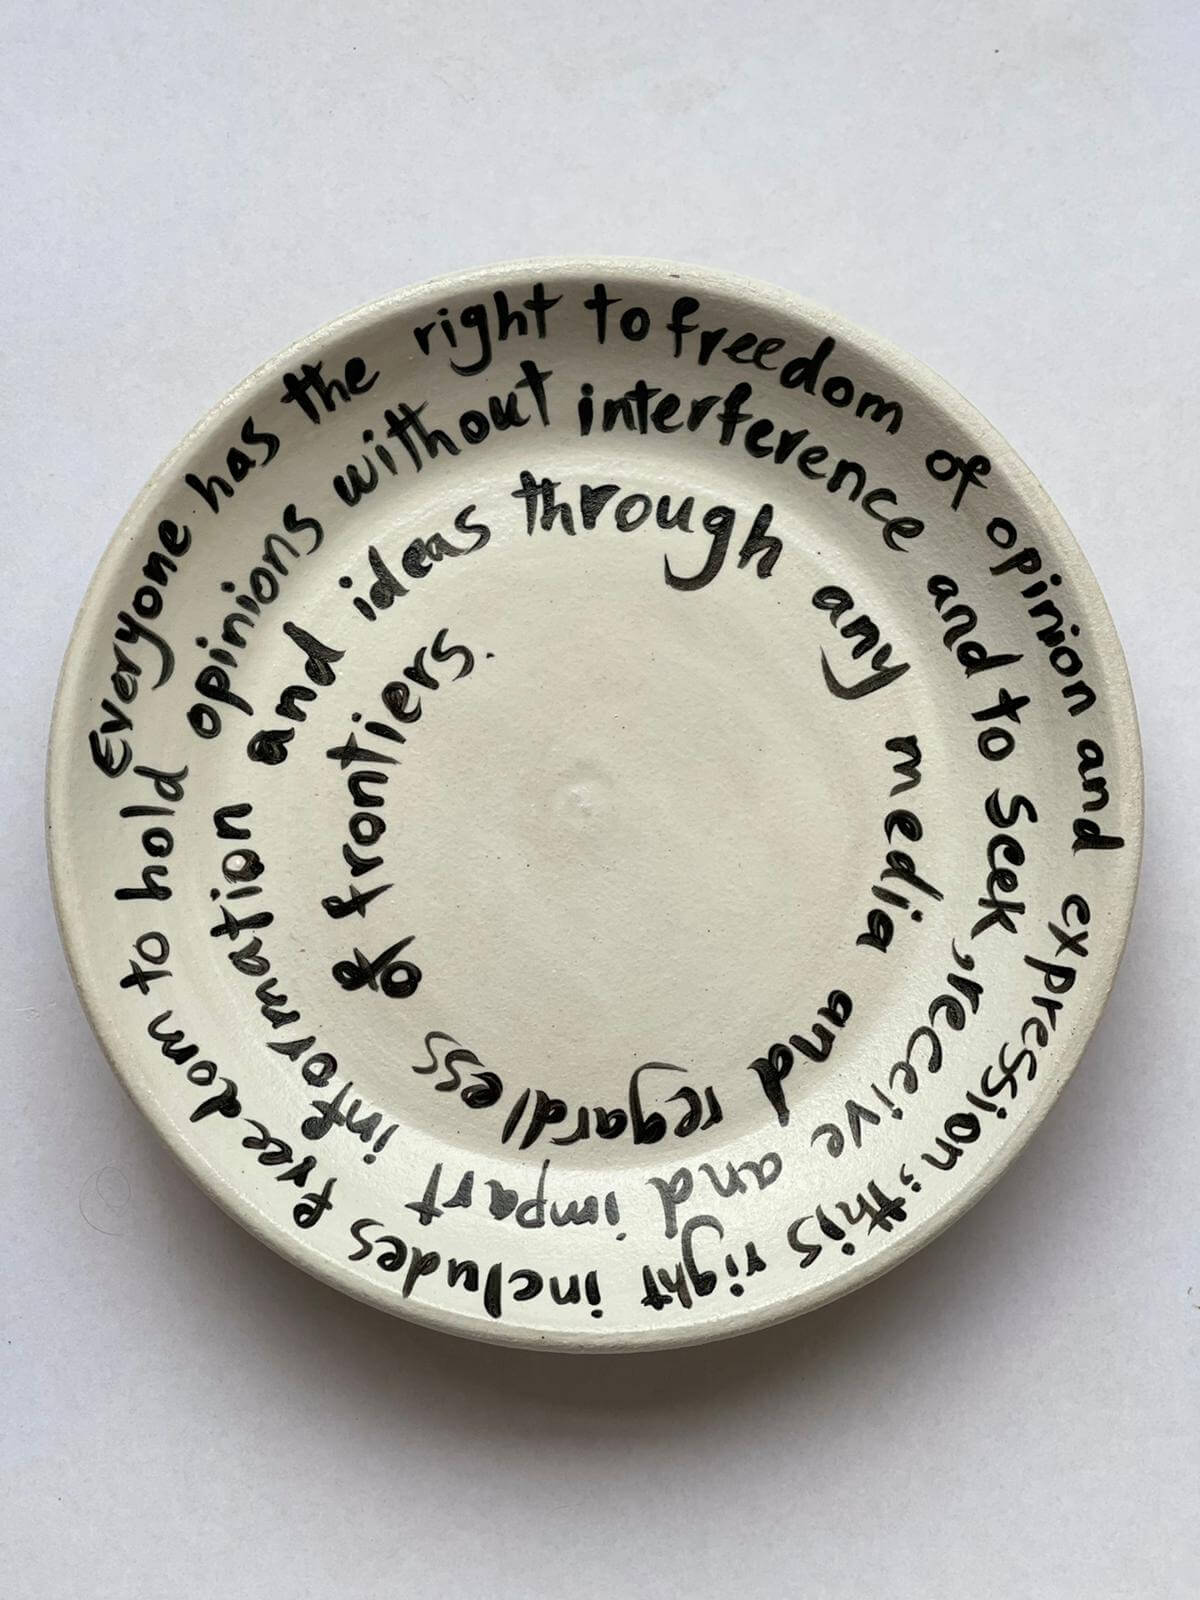 Everyone has the right to freedom of opinion and expression; this right includes freedom to hold opinions without interference and to seek, receive and impart information and ideas through any media and regardless of frontiers.